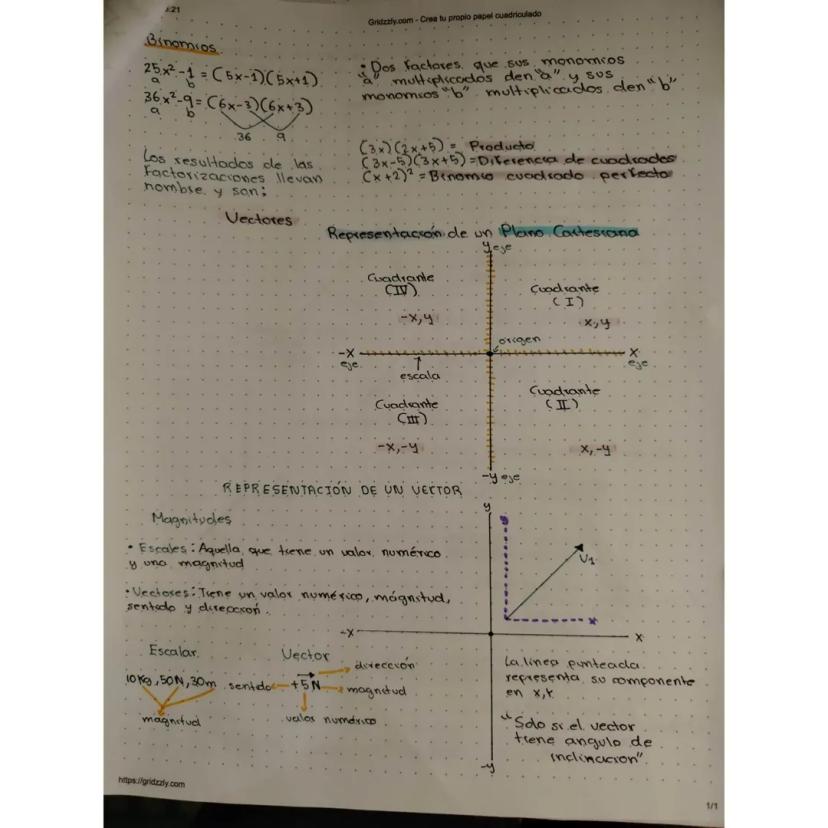 :21
Gridzzly.com - Crea tu propio papel cuadriculado
Binomios
25x²-1 = (5x-1)(5x+1)
a b
36x²-9 = (6x-3)(6x+3)
a b
36 9
• Dos factores que sus monomios
"a" multiplicados den "a" y sus
monomios "b" multiplicados den "b"
Los resultados de las
Factorizaciones llevan
nombre y son:
(3x)(2x+5) = Producto
(3x-5)(3x+5) = Diferencia de cuadrados
(x+2)² = Binomio cuadrado perfecto
Vectores
Representación de un Plano Cartesiana
y eje
Cuadrante
(IV)
-x,y
Cuadrante
(I)
x,y
origen
-x
eje
escala
x
eje
Cuadrante
(III)
-x,-y
Cuadrante
(II)
x,-y
-y eje
REPRESENTACIÓN DE UN VECTOR
Magnitudes
• Escales: Aquella que tiene un valor numérico
y una magnitud
• Vectores: Tiene un valor numérico, mágnitud,
sentido y dirección.
Escalar
10Kg, 50N, 30m
magnitud
Vector
dirección
sentido +5N magnitud
valor numérico
y
V1
x
-x
x
-y
La línea punteada
representa su componente
en x,y
"Solo si el vector
tiene angulo de
inclinacion"
https://gridzzly.com
1/1